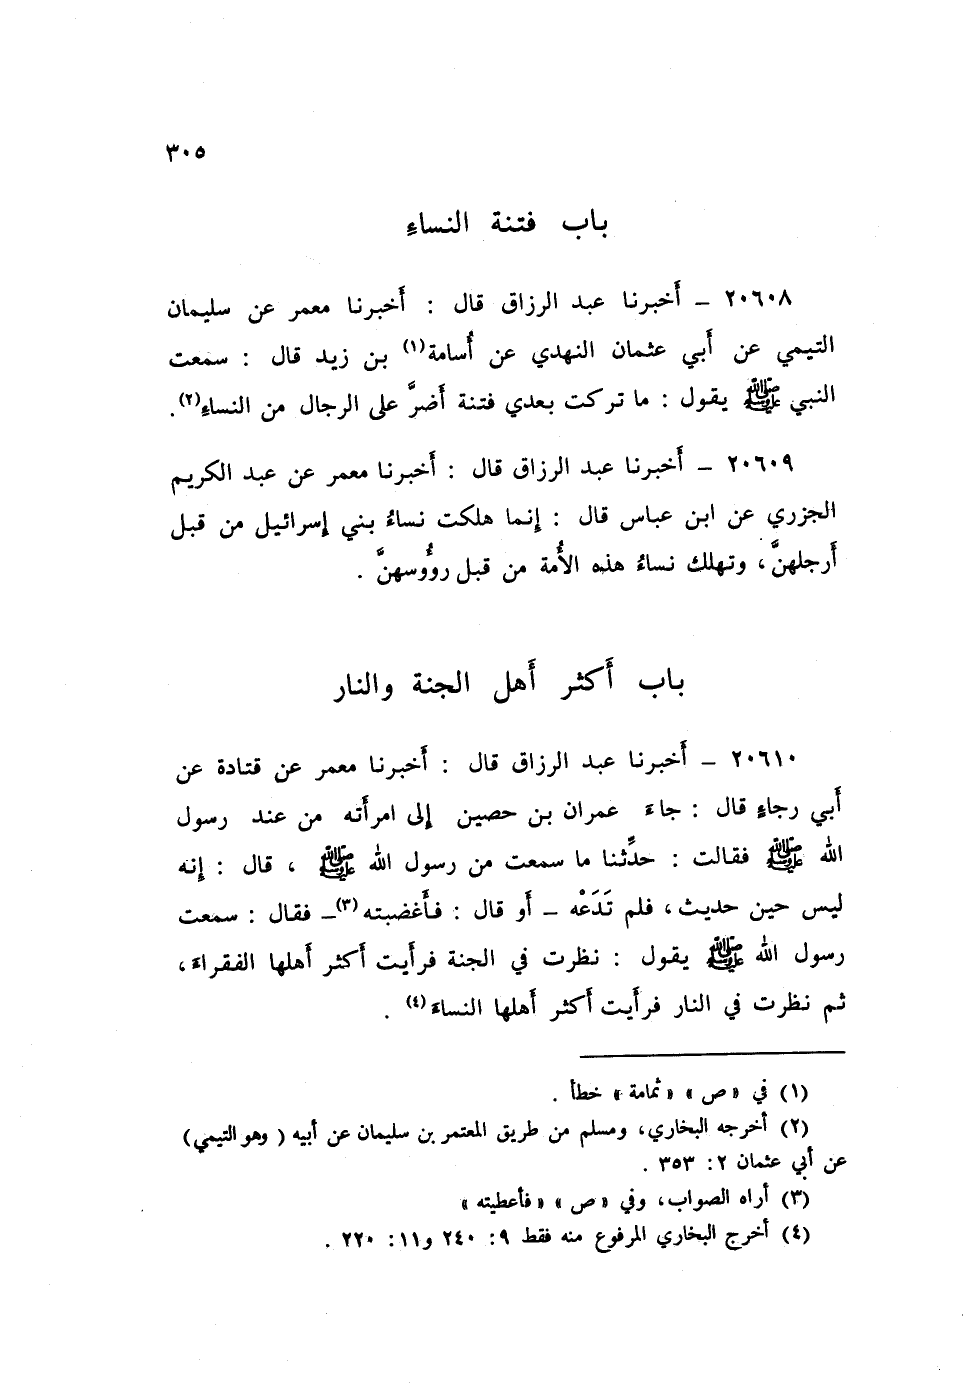 ٣٠٥
باب فتنة النساءِ
٢٠٦٠٨ ـ أَخبرنا عبد الرزاق قال : أَخبرنا معمر عن سليمان
التيمي عن أَبي عثمان النهدي عن أُسامة(١) بن زيد قال : سمعت
النبي ﷺ يقول : ما تركت بعدي فتنة أَضرَّ على الرجال من النساءِ(٢).
٢٠٦٠٩ ـ أَخبرنا عبد الرزاق قال : أَخبرنا معمر عن عبد الكريم
الجزري عن ابن عباس قال : إِنما هلكت نساءُ بني إِسرائيل من قبل
أَرجلهنَّ، وتهلك نساءُ هذه الأُمة من قبل رؤُوسهنَّ .
باب أَكثر أَهل الجنة والنار
٢٠٦١٠ ـ أَخبرنا عبد الرزاق قال : أَخبرنا معمر عن قتادة عن
أَبي رجاءٍ قال : جاءَ عمران بن حصين إِلى امرأَته من عند رسول
الله ﷺ فقالت : حدِّثنا ما سمعت من رسول الله ﷺ ، قال : إِنه
ليس حين حديث، فلم تَدَعْه ـ أَو قال : فأَغضبته(٣)ـ فقال : سمعت
رسول الله ﷺ يقول : نظرت في الجنة فرأَيت أَكثر أَهلها الفقراءَ،
ثم نظرت في النار فرأَيت أَكثر أَهلها النساءَ(٤) .
(١) في «ص» «ثمامة» خطأ .
(٢) أخرجه البخاري، ومسلم من طريق المعتمر بن سليمان عن أبيه ( وهو التيمي)
عن أبي عثمان ٢: ٣٥٣ .
(٣) أراه الصواب، وفي «ص» «فأعطيته»
(٤) أخرج البخاري المرفوع منه فقط ٩: ٢٤٠ و١١: ٢٢٠ .